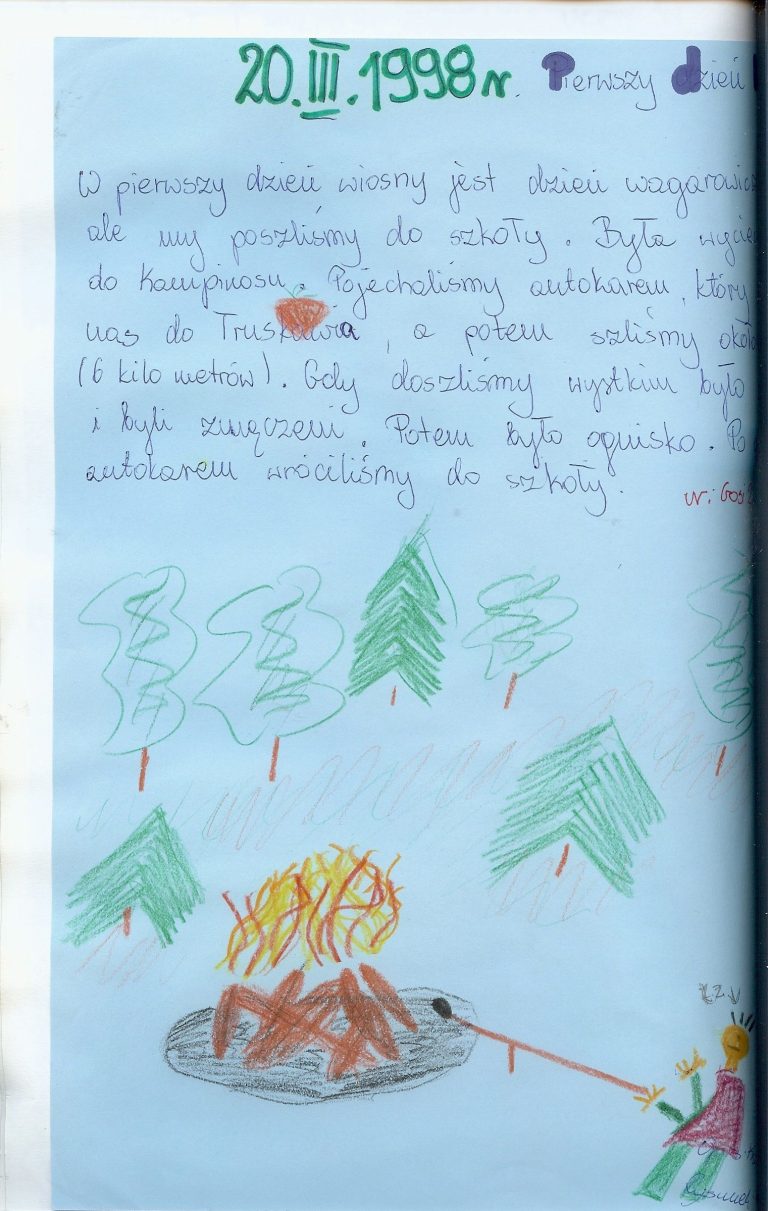 20.III.1998 r. Pierwszy dzień
W pierwszy dzień wiosny jest dzień
ale my poszliśmy do szkoły. Była
do Kampinosu. Pojechaliśmy autokarem, który
nas do , a potem szliśmy
(6 kilo metrów). Gdy doszliśmy wystkim było
i byli zmęczeni. Potem było ognisko. Po
autokarem wróciliśmy do szkoły.